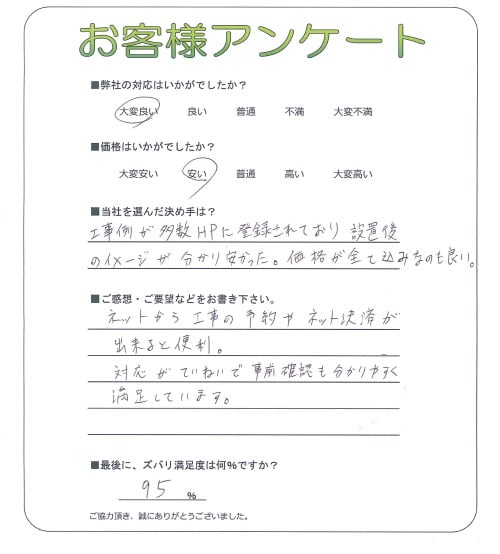 お客様アンケート
■弊社の対応はいかがでしたか？
大変良い 良い 普通 不満 大変不満
■価格はいかがでしたか？
大変安い 安い 普通 高い 大変高い
■当社を選んだ決め手は？
工事例が多数HPに登録されており設置後
のイメージが分かり安かった。価格が全て込みなのも良い。
■ご感想・ご要望などをお書き下さい。
ネットから工事の予約やネット決済が
出来ると便利。
対応がていねいで事前確認も分かりやすく
満足しています。
■最後に、ズバリ満足度は何%ですか？
95 %
ご協力頂き、誠にありがとうございました。